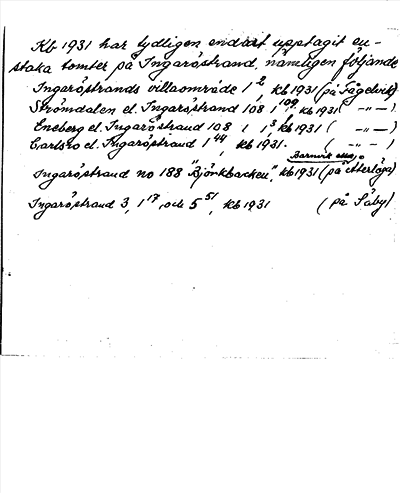 Kb 1931 har tydligen endast upptagit en-
staka tomter på Ingaröstrand, nämligen följande
Ingaröstrands villaområde 1², kb 1931 (på Fågelvik)
Strömdalen el. Ingaröstrand 108 1¹⁰⁹, kb 1931 ( -"- )
Eneberg el. Ingaröstrand 108 1 1³ kb 1931 ( -"- )
Carlsro el. Ingaröstrand 1⁴⁴, kb 1931. ( -"- )
Barnvik
Ingaröstrand no 188 "Björkbacken", kb 1931 (på Återlöga)
Ingaröstrand 3, 1¹⁷, och 5⁵¹, kb 1931 (på Säby)